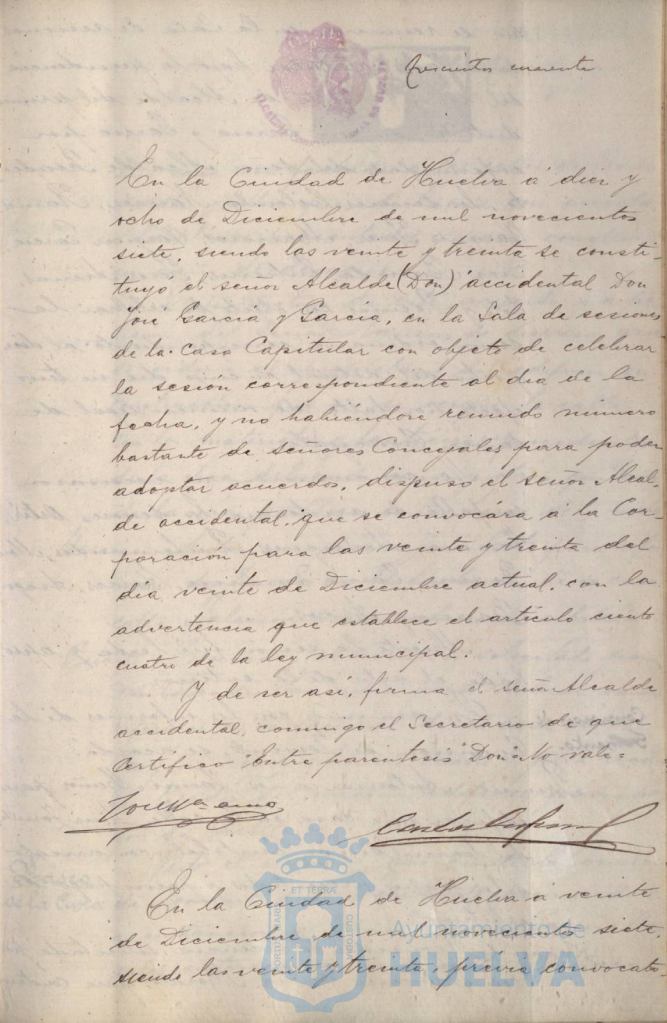 Trescientos cuarenta
En la Ciudad de Huelva á diez y
ocho de Diciembre de mil novecientos
siete, siendo las veinte y treinta se consti-
tuyó el señor Alcalde (Don) accidental Don
José García y García, en la Sala de sesiones
de la Casa Capitular con objeto de celebrar
la sesión correspondiente al día de la
fecha, y no habiéndose reunido número
bastante de señores Concejales para poder
adoptar acuerdos, dispuso el señor Alcal-
de accidental, que se convocára á la Cor-
poración para las veinte y treinta del
día veinte de Diciembre actual, con la
advertencia que establece el artículo ciento
cuatro de la ley municipal.
Y de ser así, firma el señor Alcalde
accidental, conmigo el Secretario de que
Certifico "Entre paréntesis" Don "No vale=
En la Ciudad de Huelva á veinte
de Diciembre de mil novecientos siete,
siendo las veinte y treinta, previa convocato-
Ayuntamiento de
HUELVA